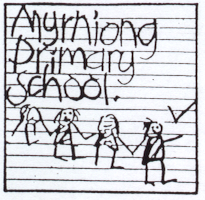 Myrniong
Primary
School.